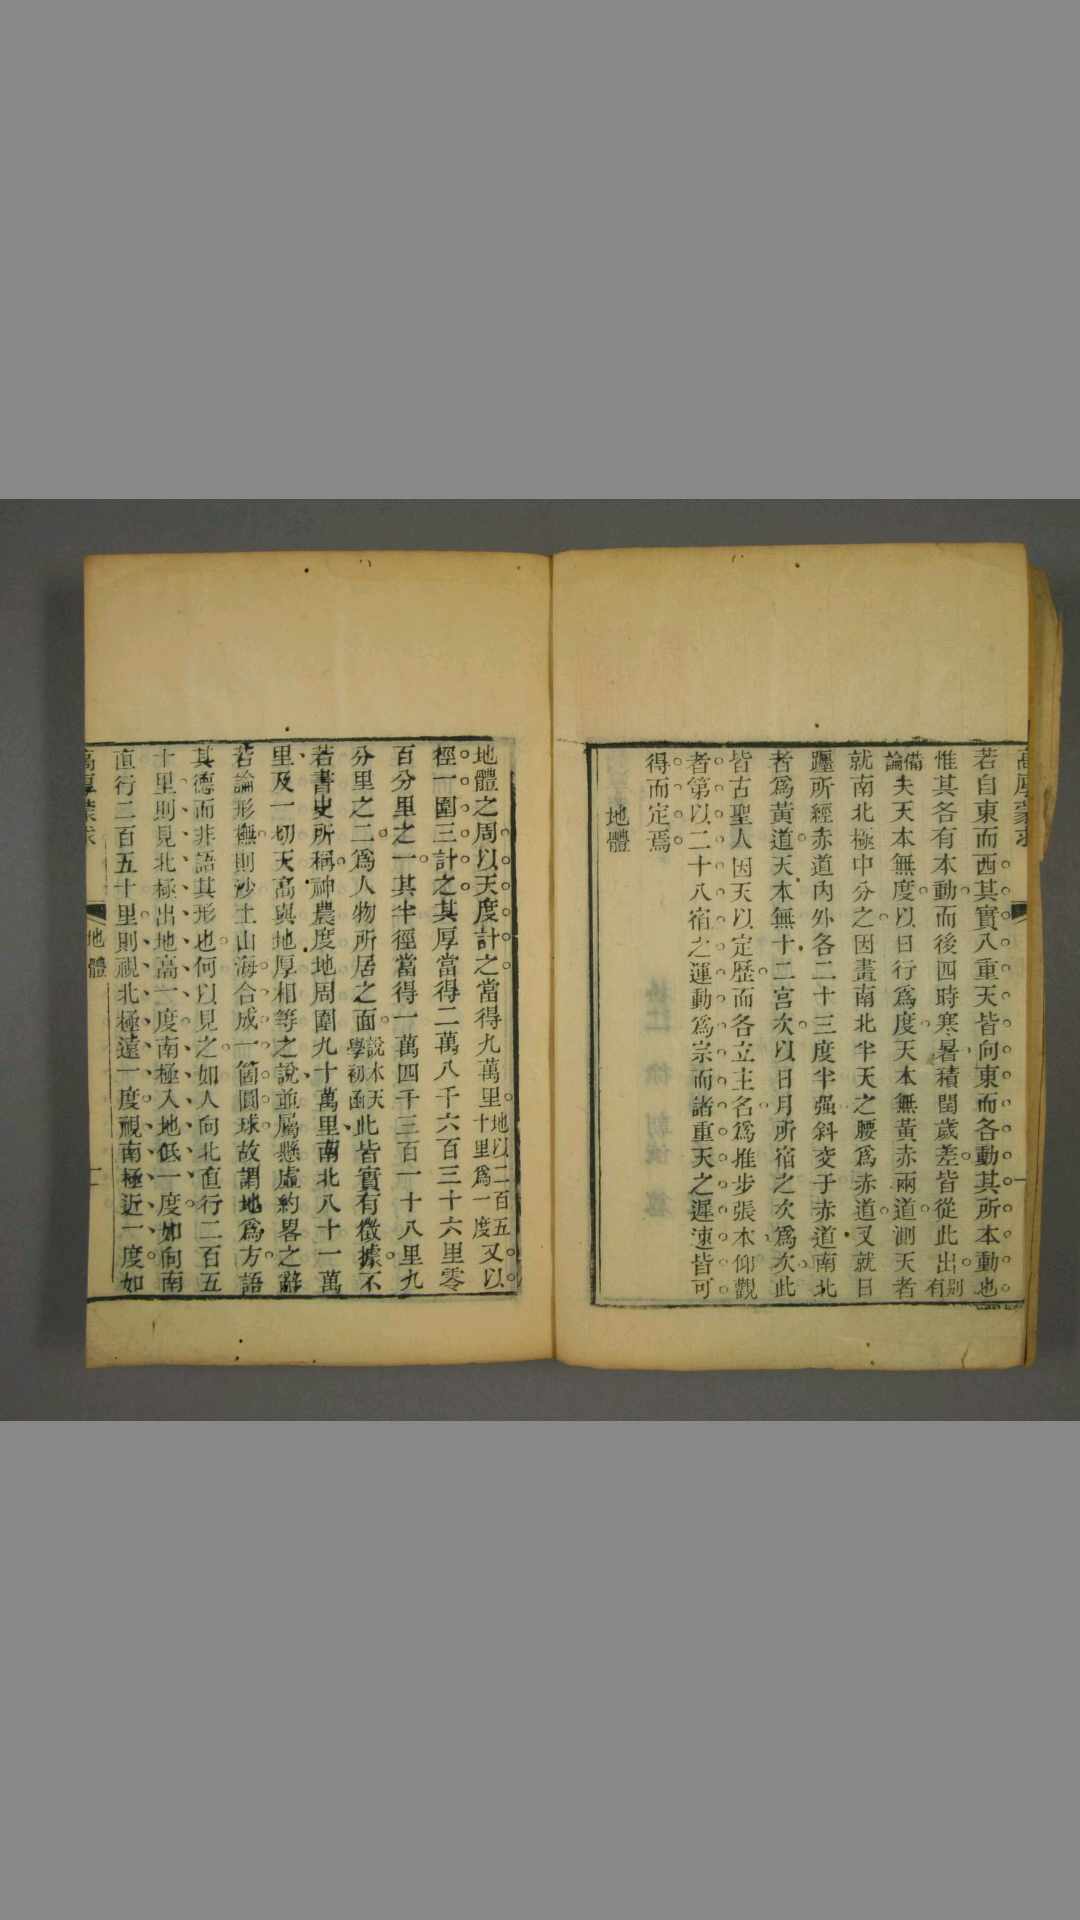 高厚蒙求
一
若自東而西其實八重天皆向東而各動其所本動也
惟其各有本動而後四時寒暑積閏歲差皆從此出別有
備論夫天本無度以日行爲度天本無黃赤兩道測天者
就南北極中分之因畫南北半天之腰爲赤道又就日
躔所經赤道內外各二十三度半强斜交于赤道南北
者爲黃道天本無十二宮次以日月所宿之次爲次此
皆古聖人因天以定歷而各立主名爲推步張本仰觀
者第以二十八宿之運動爲宗而諸重天之遲速皆可
得而定焉
地體
地體之周以天度計之當得九萬里地以二百五十里爲一度又以
徑一圍三計之其厚當得二萬八千六百三十六里零
百分里之一其半徑當得一萬四千三百一十八里九
分里之二爲人物所居之面說本天學初函此皆實有徵據不
若書史所稱神農度地周圍九十萬里南北八十一萬
里及一切天高與地厚相等之說並屬懸虛約畧之辭
若論形撫則沙土山海合成一箇圓球故謂地爲方語
其德而非語其形也何以見之如人向北直行二百五
十里則見北極出地高一度南極入地低一度如向南
直行二百五十里則視北極遠一度視南極近一度如
高厚蒙求
地體